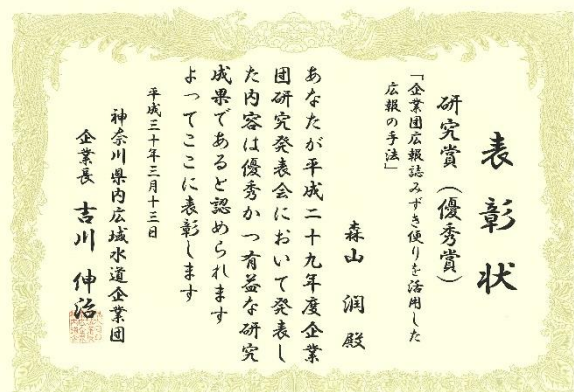 表彰状
研究賞（優秀賞）
「企業団広報誌みずき便りを活用した
広報の手法」
森山　潤　殿
あなたが平成二十九年度企業
団研究発表会において発表し
た内容は優秀かつ有益な研究
成果であると認められます
よってここに表彰します
平成三十年三月十三日
神奈川県内広域水道企業団
企業長　吉川　伸治